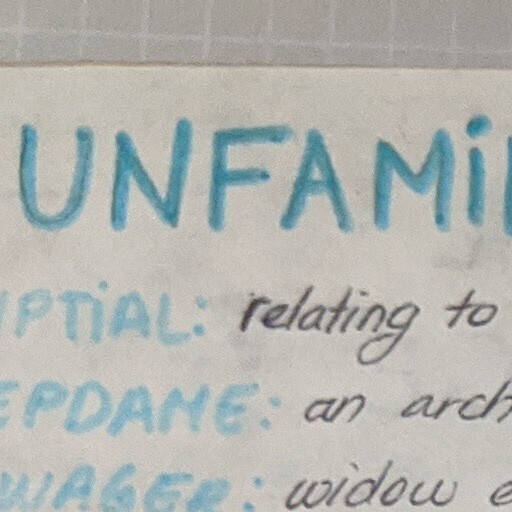 UNFAMI
PTiAL: relating to
EPDAME: an arch
WAGER: widow